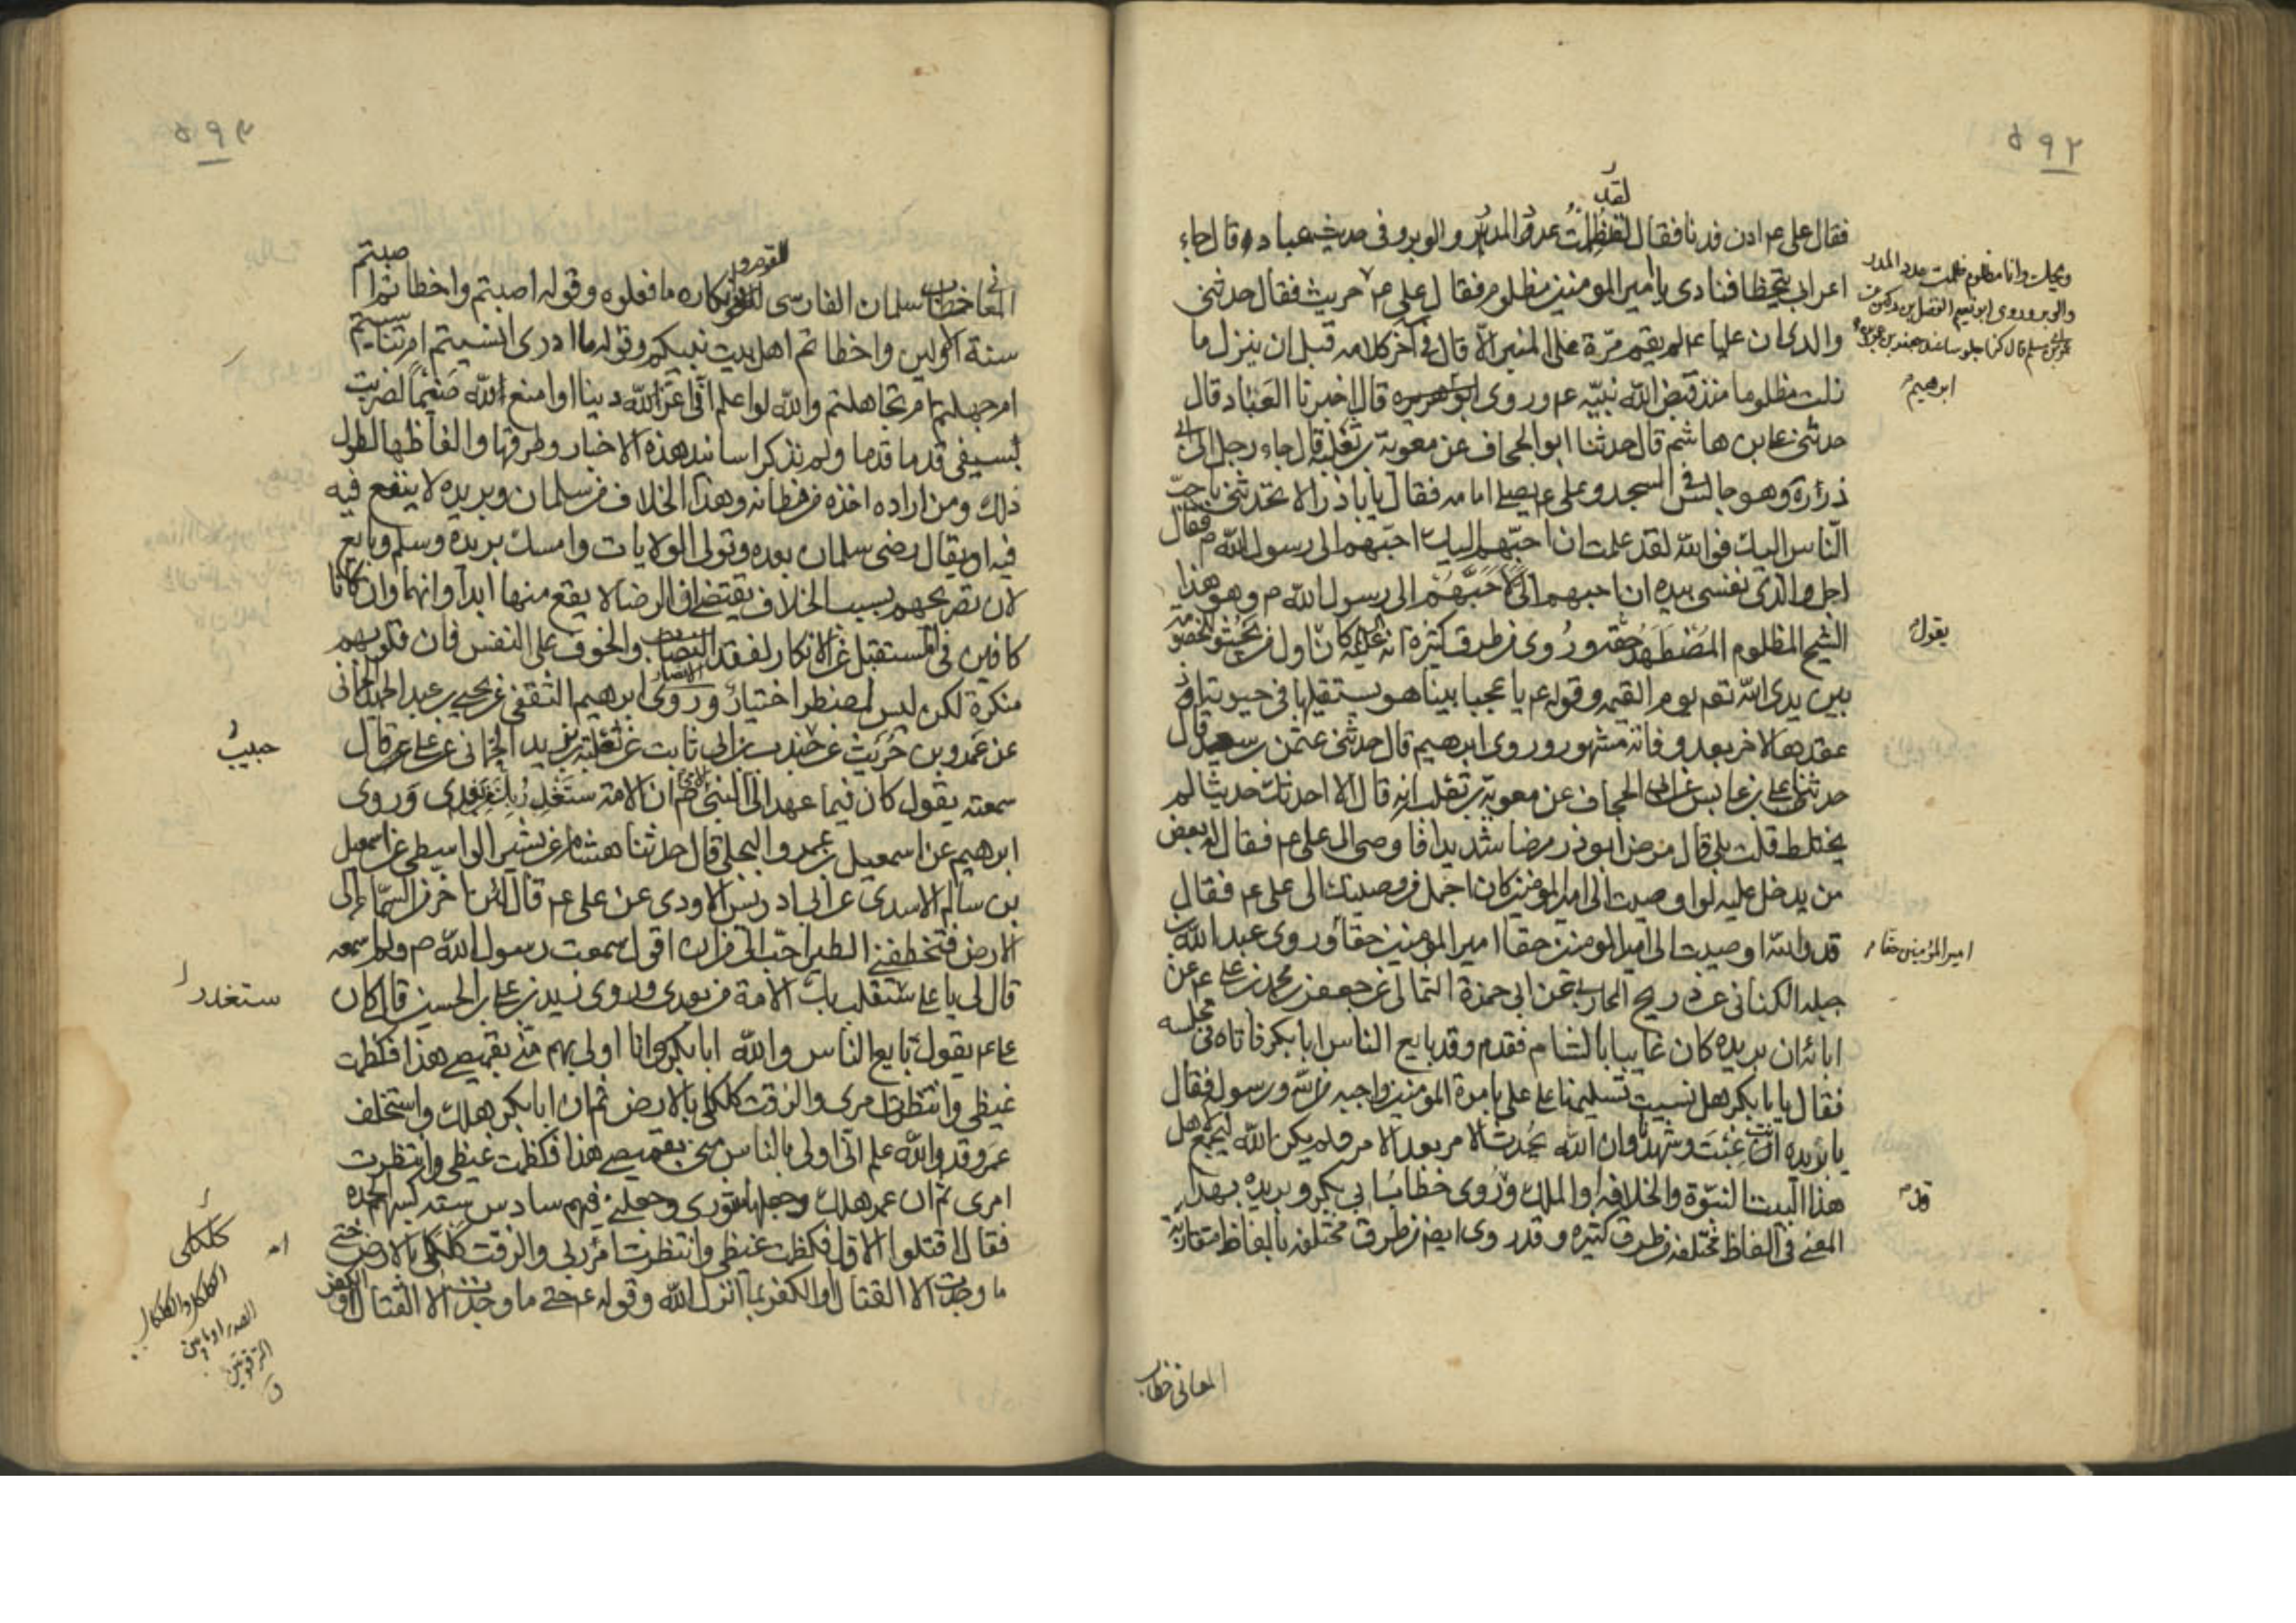 ٥٩٢
لقد
فقال علي ع ادن فدنا فقال لقد ظلمت عدد المدر والوبر وفي حديث عباد قال جاء
اعرابي يتخطا فنادى يا امير المومنين مظلوم فقال علي ع حريث فقال حدثني
والدي ان عليا ع لم يقم مرة على المنبر الا قال في آخر كلامه قبل ان ينزل ما
زلت مظلوما منذ قبض الله نبيه ع وروى قال اخبرنا العباد قال
حدثني علي بن هاشم قال حدثنا ابو الجحاف عن معوية بن ثعلبة قال جاء رجل الى ابي
ذر ره وهو جالس في المسجد وعلي ع يصلي امامه فقال يا باذر الا تحدثني باحب
الناس اليك فوالله لقد علمت ان احبهم اليك احبهم الى رسول الله ص فقال
اجل والذي نفسي بيده ان احبهم الي لاحبهم الى رسول الله ص وهو هذا
الشيخ المظلوم المضطهد حقه وروى من طرق كثيرة انه ع كان اول من يجثو للخصومة
بين يدي الله تعم يوم القيمه وقوله ع يا عجبا بينا هو يستقيلها في حيوته اذ
عقدها لاخر بعد وفاته مشهور وروى ابرهيم قال حدثني عثمن بن سعيد قال
حدثنا علي بن عابس عن ابي الجحاف عن معوية بن ثعلب انه قال الا احدثك حديثا لم
يختلط قلت بلى قال مرض ابو ذر مرضا شديدا فاوصى الى علي ع فقال له بعض
من يدخل عليه لو اوصيت الى امير المومنين كان اجمل من وصيتك الى علي ع فقال
قد والله اوصيت الى امير المومنين حقا امير المومنين حقا وروى عبد الله بن
جبله الكناني عن ذريح المحاربي عن ابي حمزة الثمالي عن جعفر بن محمد بن علي ع عن
ابائه ان بريده كان غايبا بالشام فقدم وقد بايع الناس ابا بكر فاتاه في مجلسه
فقال يا با بكر هل نسيت تسليمنا على علي بامرة المومنين واجبه من الله ورسوله فقال
يا بريده انك غبت وشهدنا وان الله يحدث الامر بعد الامر ولم يكن الله ليجمع لاهل
هذا البيت النبوة والخلافه او الملك وروى خطاب ابي بكر وبريده بهذا
المعنى في الفاظ مختلفه من طرق كثيره وقد روى ايضا من طرق مختلفه بالفاظ متقاربة
ويحك وانا مظلوم ظلمت عدد المدر
والوبر وروى ابو نعيم الفضل بن دكين عن
ابرهيم
يقول
امير المؤمنين حقا
المعاني خطاب
٥٩٣
المعاني خطاب سلمان الفارسي للقوم وانكاره ما فعلوه وقوله اصبتم واخطاتم اصبتم
سنة الاولين واخطاتم اهل بيت نبيكم وقوله ما ادري انسيتم ام تناسيتم
ام جهلتم ام تجاهلتم والله لو اعلم اني اعز لله دينا او امنع لله ضيما لضربت
بسيفي قدما قدما ولم نذكر اسانيد هذه الاخبار وطرقها والفاظها لطول
ذلك ومن اراده اخذه من مظانه وهذا الخلاف من سلمان وبريده لا ينفع فيه
فيه او يقال رضي سلمان بعده وتولى الولايات وامسك بريده وسلم وبايع
لان تصريحهم بسبب الخلاف يقتضي ان الرضا لا يقع منها ابدا وانهما وان كانا
كافين في المستقبل عن الانكار لفقد والخوف على النفس فان قلوبهم
منكرة لكن ليس لمضطر اختيار وروى ابرهيم الثقفي عن يحيى بن عبد الحميد الحماني
عن عمرو بن حريث عن حبيب بن ابي ثابت عن ثعلبة بن يزيد الحماني عن علي ع قال
سمعته يقول كان فيما عهد الى النبي الامي ان الامة ستغدر بك بعدي وروى
ابرهيم عن اسمعيل بن عمرو البجلي قال حدثنا هشام بن بشير الواسطي عن اسمعيل
بن سالم الاسدي عن ابي ادريس الاودي عن علي ع قال لئن اخر من السماء الى
الارض فتخطفني الطير احب الى من ان اقول سمعت رسول الله ص ولم اسمعه
قال لي يا علي ستغدر بك الامة من بعدي وروى زيد بن علي بن الحسين قال كان
علي ع يقول بايع الناس والله ابا بكر وانا اولى بهم مني بقميصي هذا فكظمت
غيظي وانتظرت امري والزقت كلكلي بالارض ثم ان ابا بكر هلك واستخلف
عمر وقد والله علم اني اولى بالناس مني بقميصي هذا فكظمت غيظي وانتظرت
امري ثم ان عمر هلك وجعلها شورى وجعلني فيهم سادس سته كسهم الجده
فقال اقتلوا الاقل فكظمت غيظي وانتظرت امر ربي والزقت كلكلي بالارض حتى
ما وجدت الا القتال او الكفر بما انزل الله وقوله ع حتى ما وجدت الا القتال او الكفر
حبيب
ستغدر
كلكلي
الكلكل والكلكال
الصدر او ما بين
الترقوتين
ق